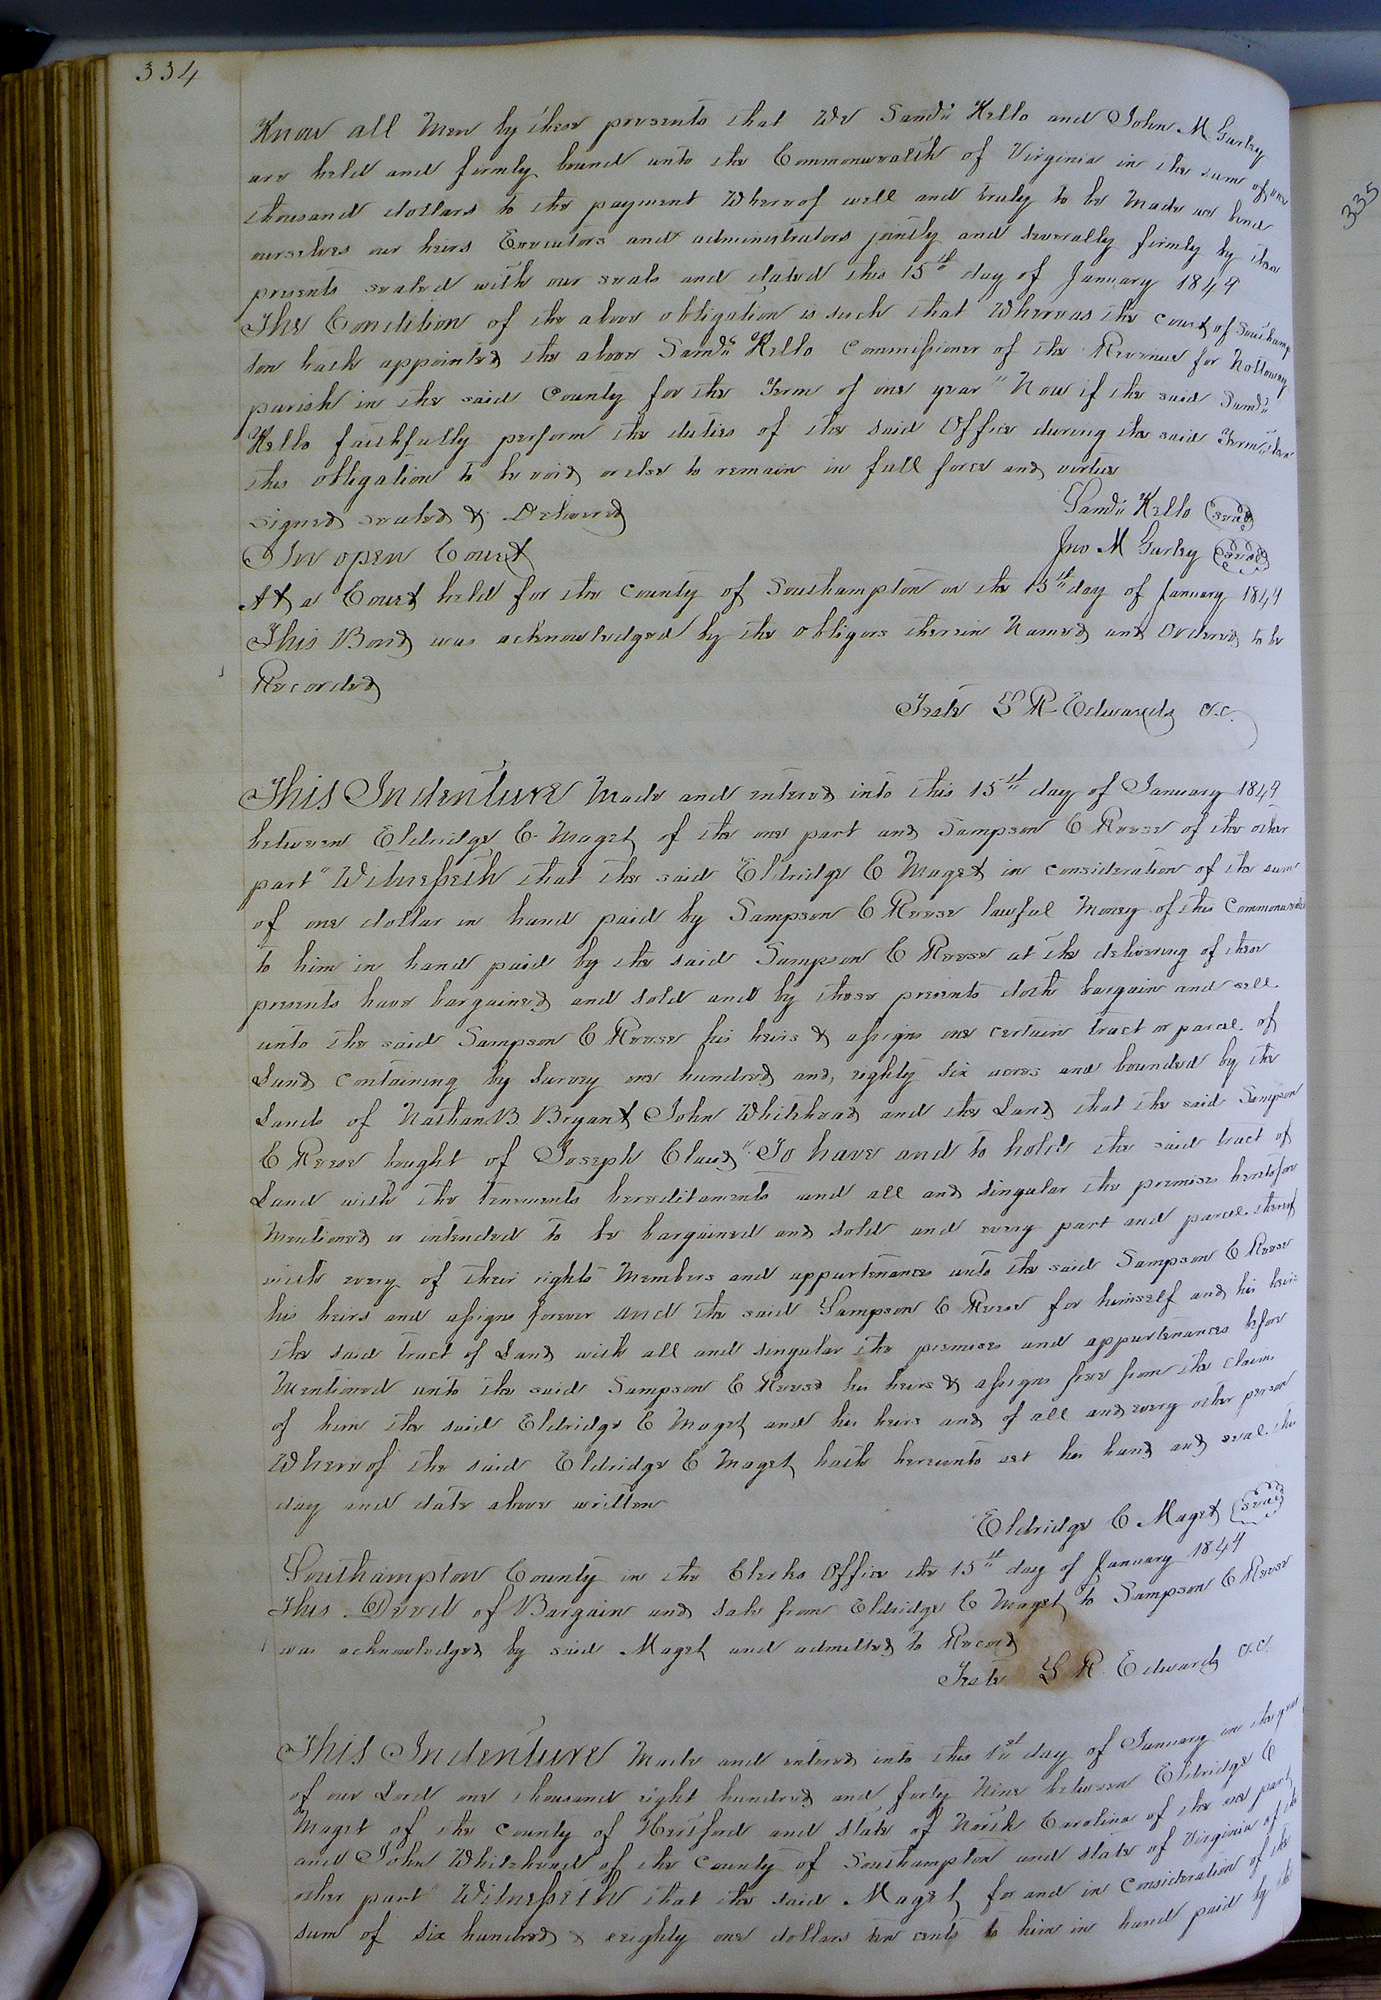 334
Know all Men by these presents that We Saml. Kello and John M Gurley
are held and firmly bound unto the Commonwealth of Virginia in the sum of one
thousand dollars to the payment Whereof well and truly to be Made we bind
ourselves our heirs Executors and administrators jointly and severally firmly by these
presents sealed with our seals and dated this 15th day of January 1849
The Condition of the above obligation is such that Whereas the Court of Southamp
ton hath appointed the above Kello Commissioner of the Revenue for Nottoway
parish in the said County for the Term of one year" Now if the said
Kello faithfully perform the duties of the said Office during the said Term then
this obligation to be void or else to remain in full force and virtue
signed sealed & Delivered Kello (seal)
In open Court Jno M Gurley (seal)
At a Court held for the County of Southampton on the 15th day of January 1849
This Bond was acknowledged by the obligors therein Named and Ordered to be
Recorded
Teste L R Edwards C.C.
This Indenture Made and entered into this 15th day of January 1849
between Eldridge C. Maget of the one part and Sampson C Reese of the other
part" Witnesseth that the said Eldridge C Maget in consideration of the sum
of one dollar in hand paid by Sampson C Reese lawful Money of this Commonwealth
to him in hand paid by the said Sampson C Reese at the delivering of these
presents have bargained and sold and by these presents doth bargain and sell
unto the said Sampson C Reese his heirs & assigns one certain tract or parcel of
Land containing by survey one hundred and, eighty six acres and bounded by the
Lands of Nathan B Bryant John Whitehead and the Land that the said Sampson
C Reese bought of Joseph Claud" To have and to hold the said tract of
Land with the tenements hereditaments and all and singular the premises heretofore
Mentioned or intended to be bargained and sold and every part and parcel thereof
with every of their rights Members and appurtenances unto the said Sampson C Reese
his heirs and assigns forever and the said Sampson C Reese for himself and his heirs
the said tract of Land with all and singular the premises and appurtenances before
Mentioned unto the said Sampson C Reese his heirs & assigns free from the claim
of him the said Eldridge C Maget and his heirs and of all and every other person
Whereof the said Eldridge C Maget hath hereunto set his hand and seal the
day and date above written
Eldridge C Maget (seal)
Southampton County in the Clerks Office the 15th day of January 1849
This Deed of Bargain and sale from Eldridge C Maget to Sampson C Reese
was acknowledged by said Maget and admitted to Record
Teste L R Edwards C.C.
This Indenture Made and entered into this 1st day of January in the year
of our Lord one thousand eight hundred and forty Nine between Eldridge C
Maget of the County of Hertford and State of North Carolina of the one part
and John Whitehead of the County of Southampton and state of Virginia of the
other part" Witnesseth that the said Maget for and in Consideration of the
sum of six hundred & eighty one dollars ten cents to him in hand paid by the
335